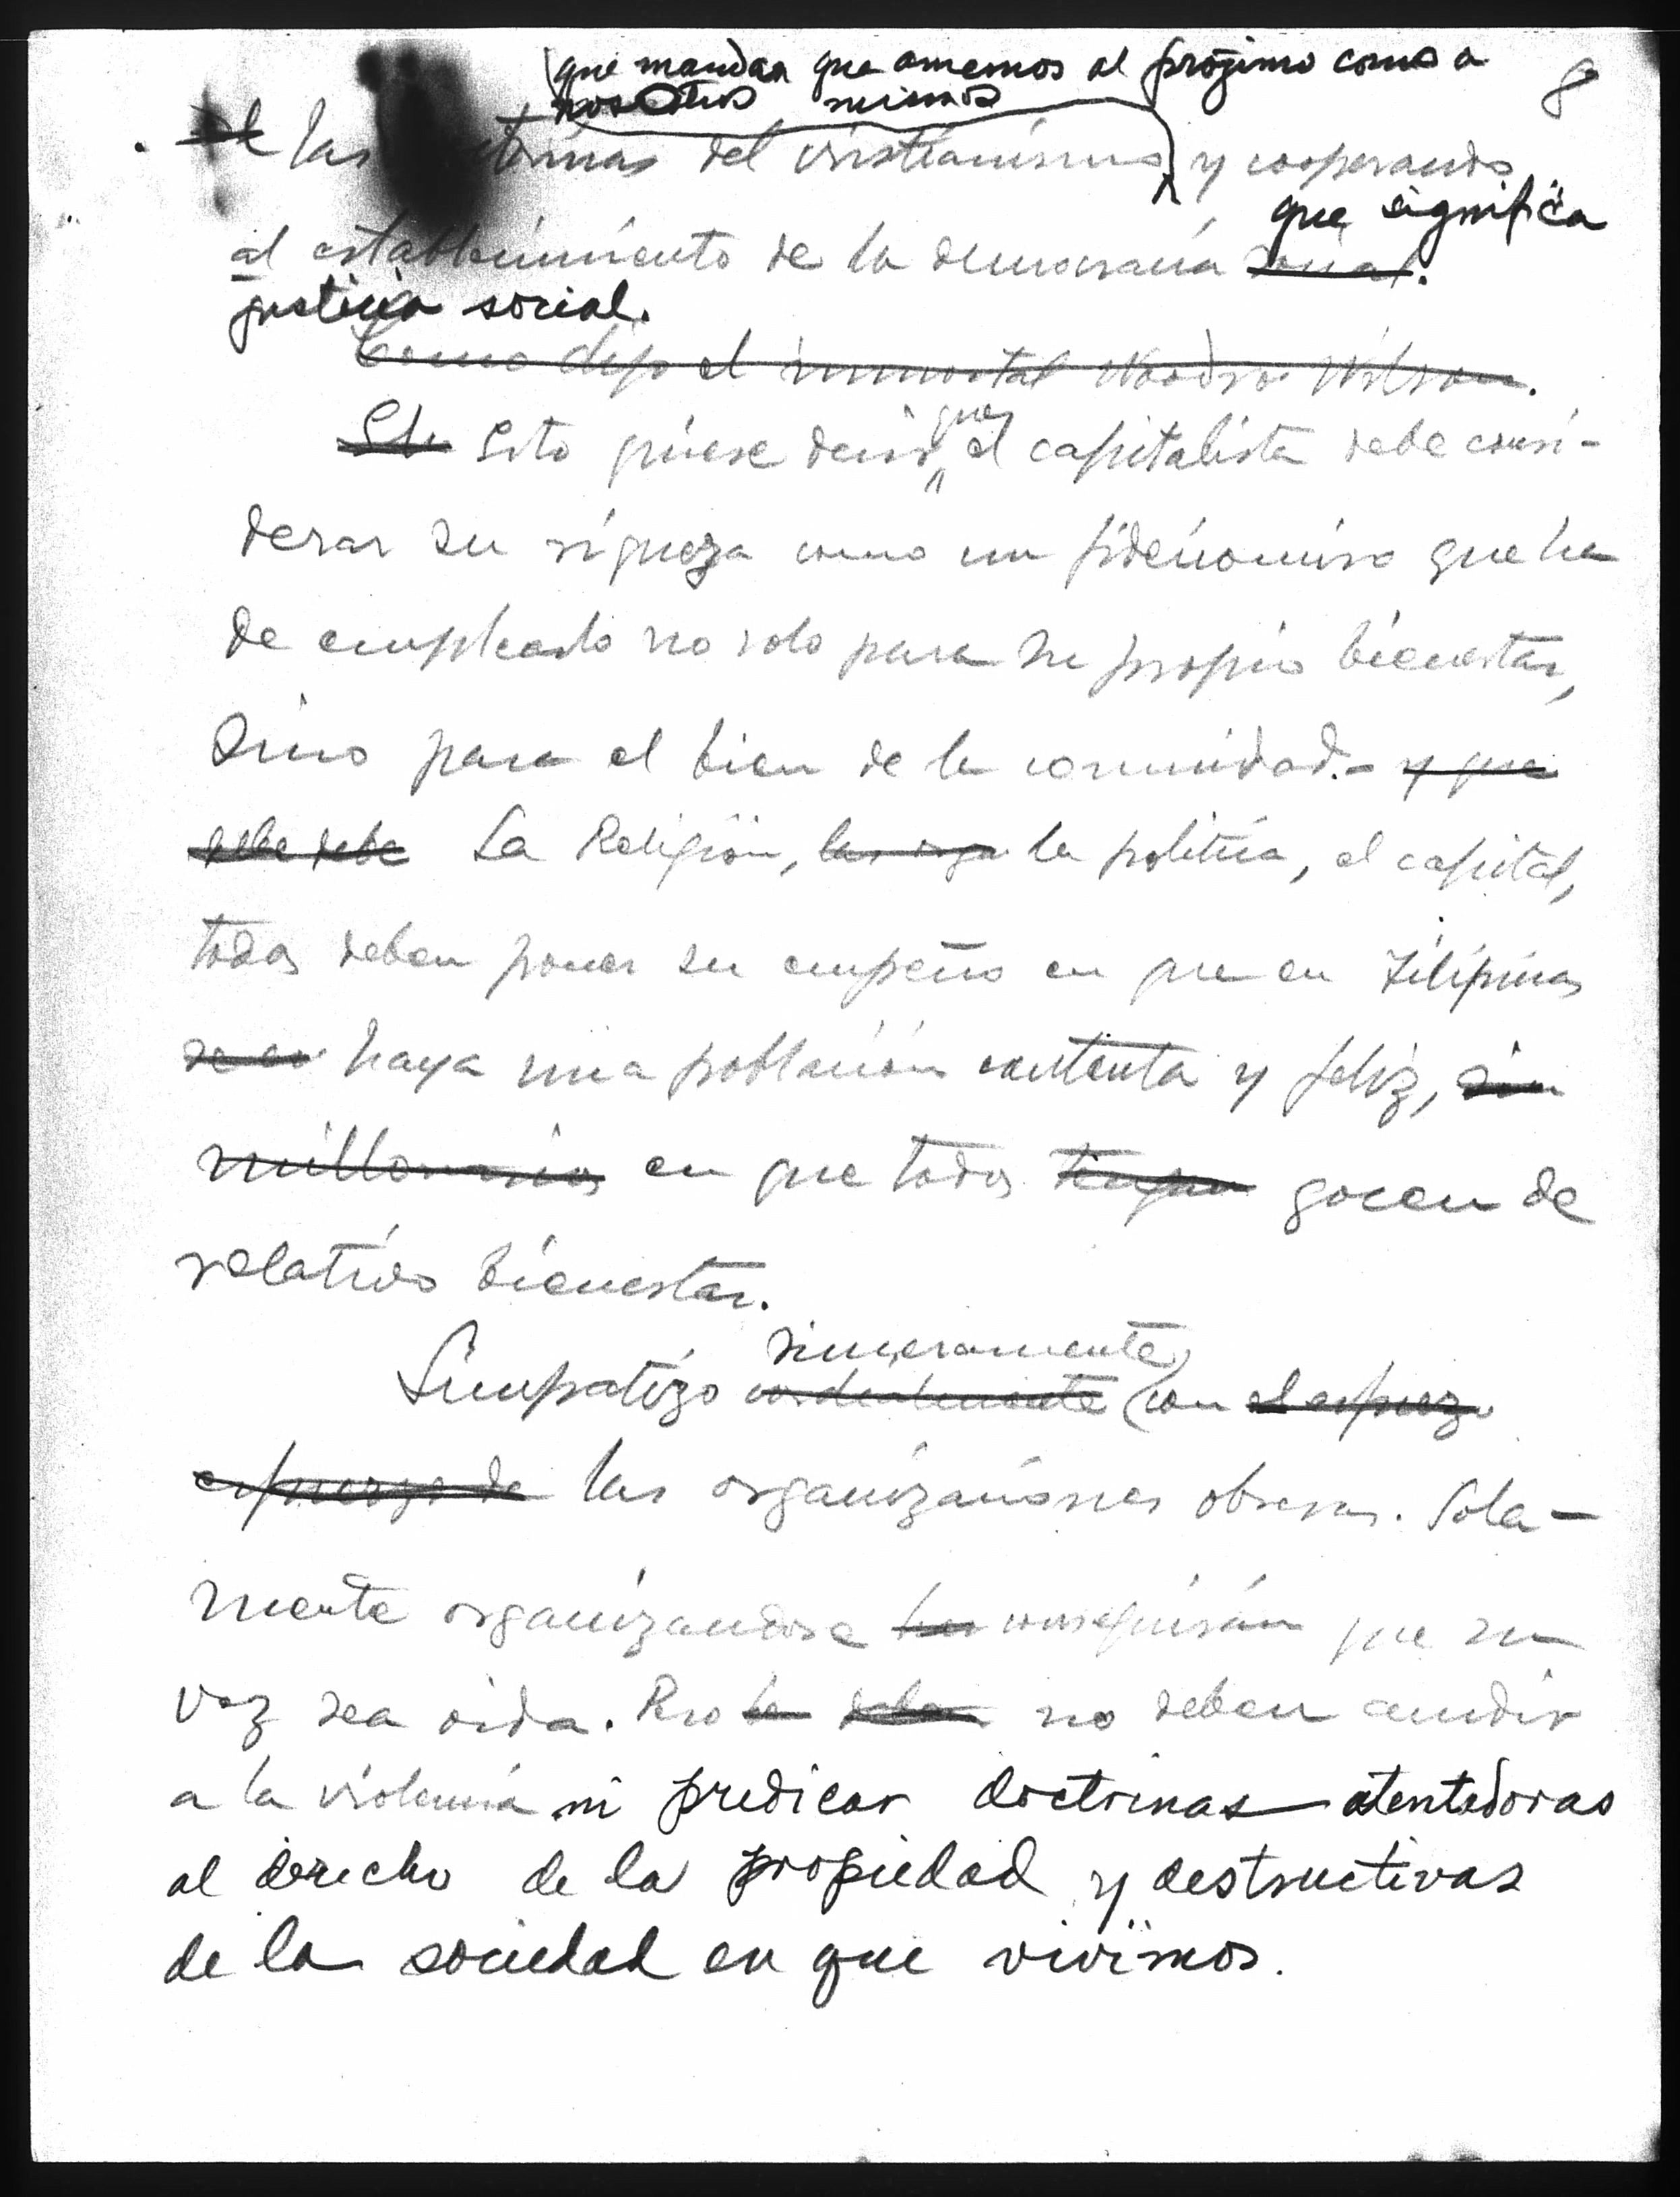 que mandan que amemos al prójimo como a
nosotros mismos
8
el las doctrinas del cristianismo y cooperando
que significa
al establecimiento de la democracia social.
justicia social.
Como dijo el inmortal Woodrow Wilson.
que
Esto quiere decir el capitalista debe consi-
derar su riqueza como un fideicomiso que ha
de emplearlo no solo para su propio bienestar,
sino para el bien de la comunidad. - y que
debe debe La Religión, la politica, el capital,
todos deben poner su empeño en que en Filipinas
haya una población contenta y feliz, sin
millonarios en que todos tengan gocen de
relativo bienestar.
sinceramente
Simpatizo cordialmente con el esfuerzo
esfuerzo de las organizaciones obreras. Sola-
mente organizandose conseguirán que su
voz sea oida. Pero no deben acudir
a la violencia ni predicar doctrinas atentadoras
al derecho de la propiedad y destructivas
de la sociedad en que vivimos.